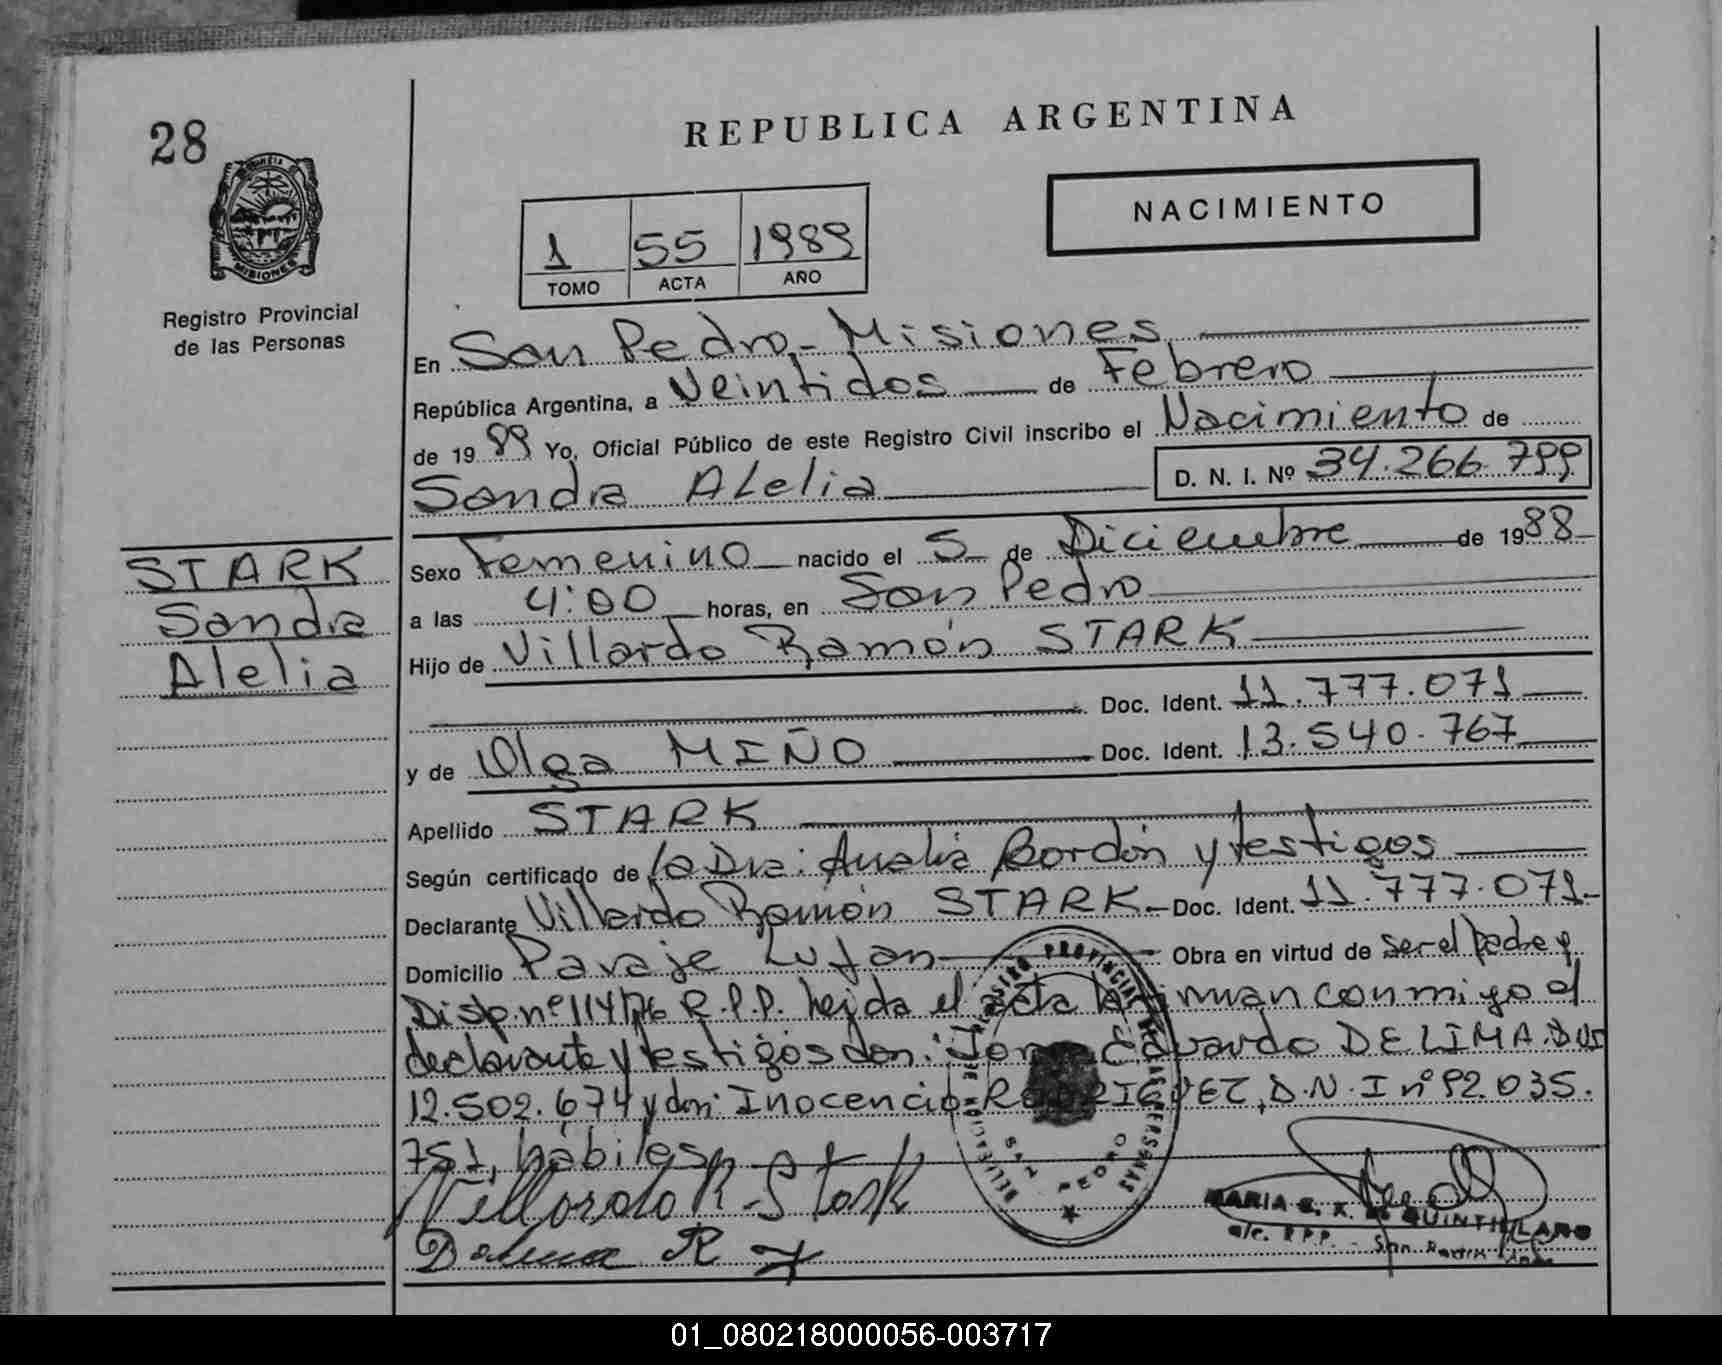 28
REPUBLICA ARGENTINA
NACIMIENTO
MISIONES
1 55 1989
TOMO ACTA AÑO
Registro Provincial
de las Personas
En San Pedro - Misiones
República Argentina, a Veintidos de Febrero
de 1989 Yo, Oficial Público de este Registro Civil inscribo el Nacimiento de
Sandra Alelia D. N. I. Nº 34.266.799
STARK
Sandra
Alelia
Sexo Femenino nacido el 5 de Diciembre de 1988
a las 4:00 horas, en San Pedro
Hijo de Villardo Ramón STARK
Doc. Ident. 11.777.071
y de Olga MIÑO Doc. Ident. 13.540.767
Apellido STARK
Según certificado de la Dra: Analia Bordón y testigos
Declarante Villardo Ramón STARK - Doc. Ident. 11.777.071-
Domicilio Paraje Lujan Obra en virtud de ser el padre y
Disp. nº 114/76 R.P.P. leida el acta la firman conmigo el
declarante y testigos don: Eduardo DE LIMA. DNI
12.502.674 y don: Inocencio RODRIGUEZ, D.N.I nº 92.035.
751, hábiles
Villardo R Stark
REGISTRO PROVINCIAL DE LAS PERSONAS
SAN PEDRO
MARIA QUINTILLANO
a/c. R.P.P. - San
01_080218000056-003717